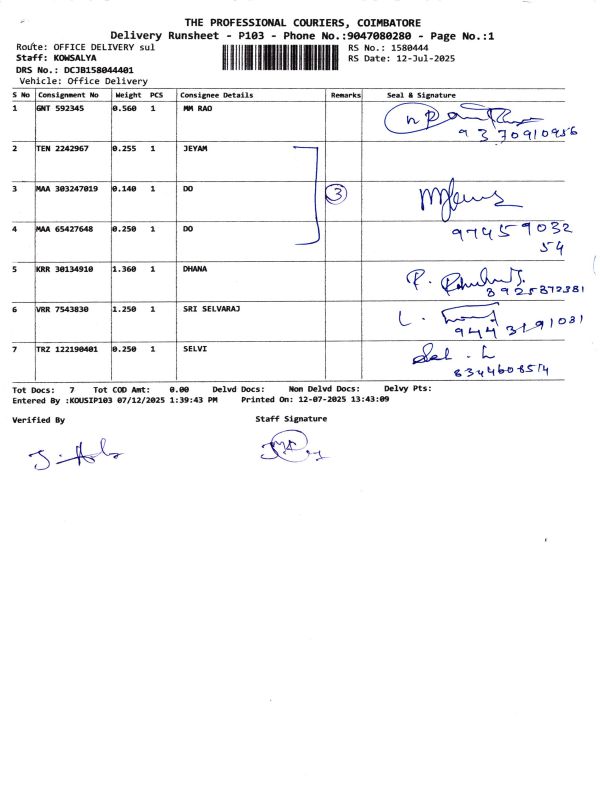 THE PROFESSIONAL COURIERS, COIMBATORE
Delivery Runsheet - P103 - Phone No.:9047080280 - Page No.:1
Route: OFFICE DELIVERY sul
RS No.: 1580444
Staff: KOWSALYA
RS Date: 12-Jul-2025
DRS No.: DCJB158044401
Vehicle: Office Delivery
S No Consignment No Weight PCS Consignee Details Remarks Seal & Signature
1 GNT 592345 0.560 1 MM RAO
9370910956
2 TEN 2242967 0.255 1 JEYAM
3 MAA 303247019 0.140 1 DO 3
4 MAA 65427648 0.250 1 DO 9745903254
5 KRR 30134910 1.360 1 DHANA
8925872381
6 VRR 7543830 1.250 1 SRI SELVARAJ
9443191031
7 TRZ 122190401 0.250 1 SELVI
Tot Docs: 7 Tot COD Amt: 0.00 Delvd Docs: Non Delvd Docs: Delvy Pts:
Entered By :KOUSIP103 07/12/2025 1:39:43 PM Printed On: 12-07-2025 13:43:09
Verified By Staff Signature